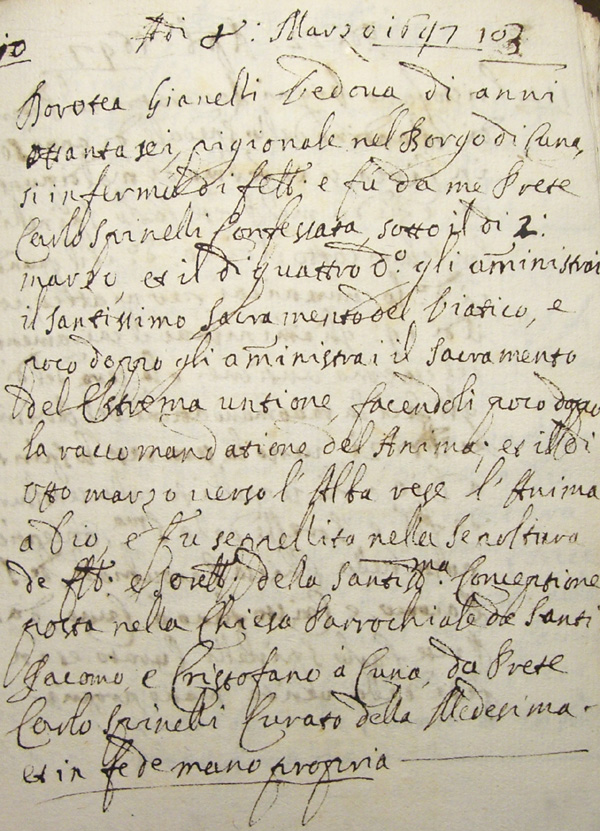 Adi 8: Marzo 1697 103
Dorotea Gianelli Vedova di anni
ottanta sei, pigionale nel Borgo di Cuna,
si infermò di febb: e fù da me Prete
Carlo Spinelli Confessata, sotto il dì 2:
marzo, et il dì quattro dº. gli aministrai
il Santissimo Sacramento del Viatico, e
poco doppo gli aministrai il Sacramento
del Estrema untione, facendoli poco doppo
la raccomandatione del Anima; et il dì
otto marzo verso l'Alba rese l'Anima
a Dio, e fù seppellita nella Sepoltura
de ftt: e sorell: della Santissma: Conceptione
posta nella Chiesa Parrochiale de Santi
Jacomo e Cristofano à Cuna, da Prete
Carlo Spinelli Curato della Medesima.
et in fede mano propria